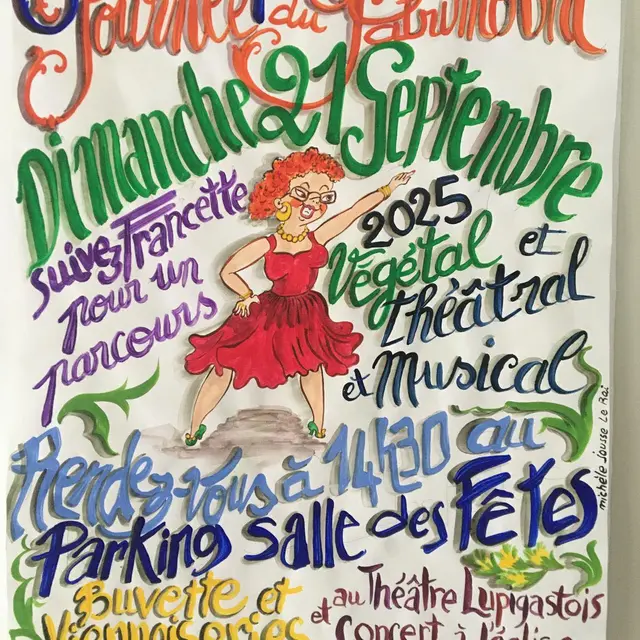 Journée du Patrimoine
Dimanche 21 Septembre
2025
suivez Francette
pour un
parcours
Végétal et
théâtral
et Musical
Rendez-vous à 14h30 au
Parking Salle des Fêtes
Buvette et
Viennoiseries
au Théâtre Lupigastois
et Concert à
michèle Jousse Le Rai